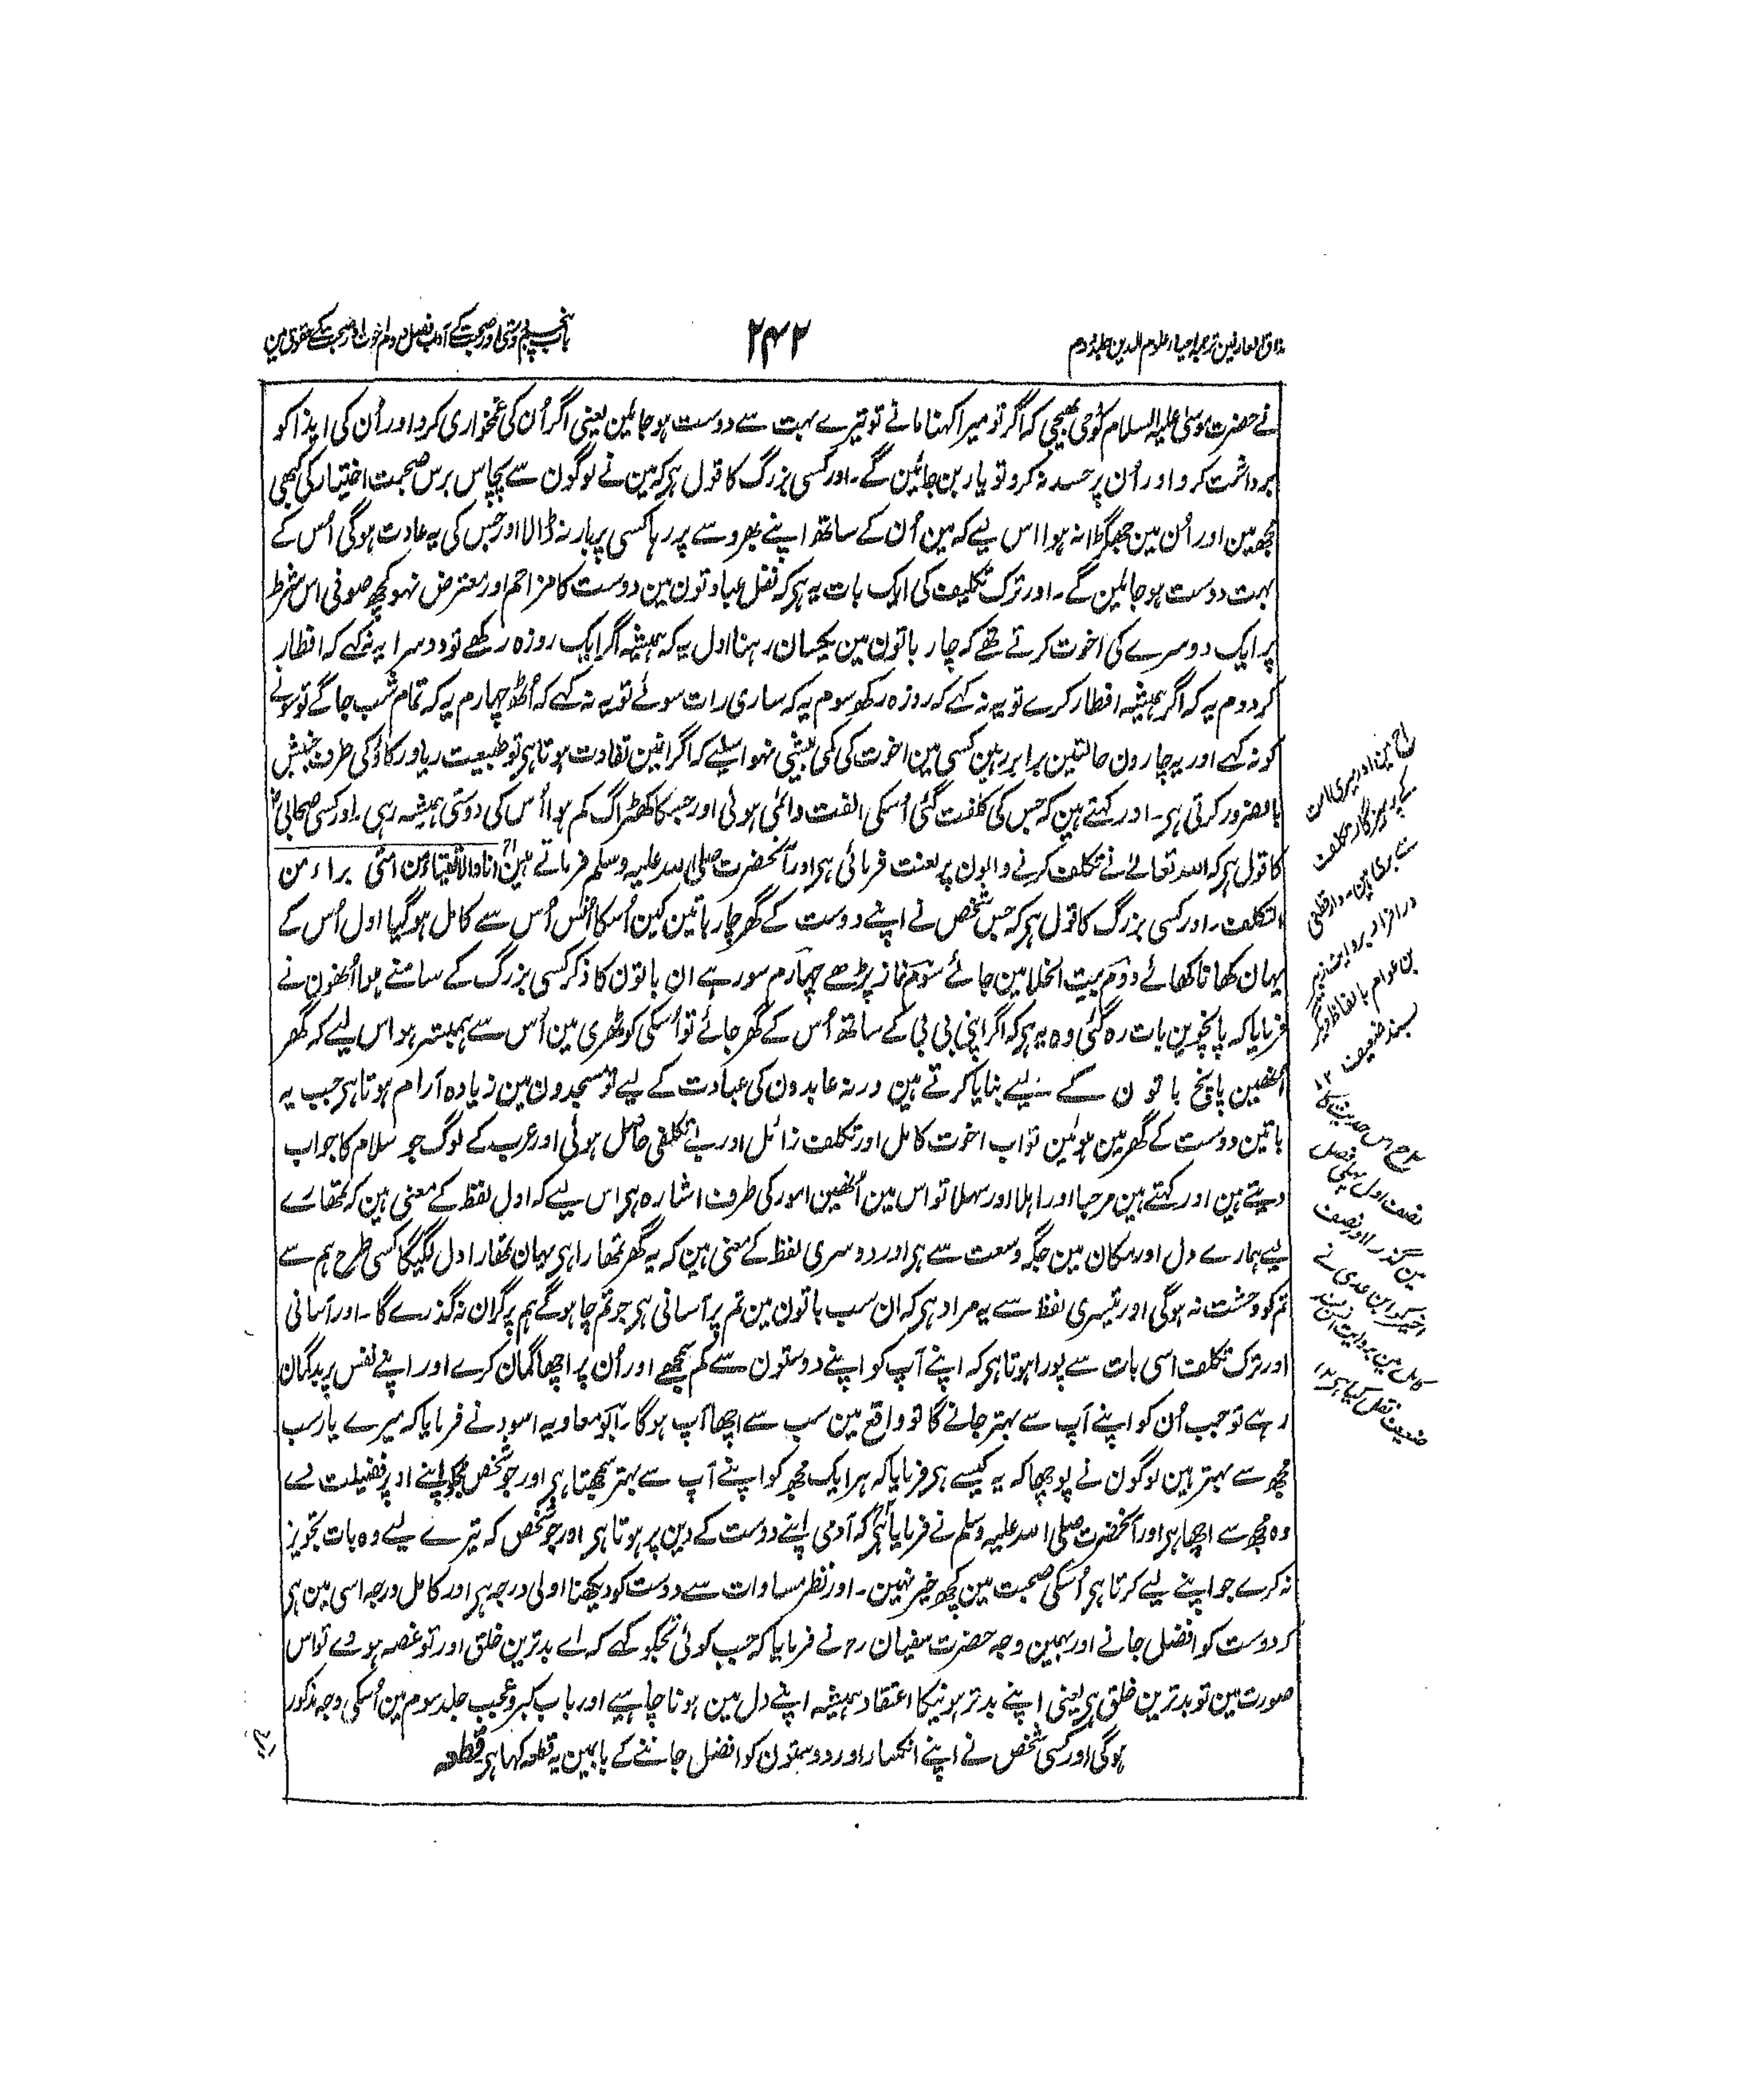 مذاق العارفین ترجمہ احیاء علوم الدین جلد دوم
۲۴۲
باب پنجم دوستی اور صحبت کے آداب فصل دوم اخوت اور صحبت کے حقوق مین
نے حضرت موسیٰ علیہ السلام کو وحی بھیجی کہ اگر تو میرا کہنا مانے تو تیرے بہت سے دوست ہو جائین یعنی اگر اُن کی غمخواری کرو اور اُن کی ایذا کو
برداشت کرو اور اُن پر حسد نہ کرو تو یار بن جائین گے۔ اور کسی بزرگ کا قول ہی کہ مین نے لوگون سے پچاس برس صحبت اختیار کی کبھی
مجھ مین اور اُن مین جھگڑا نہ ہوا اس لیے کہ مین اُن کے ساتھ اپنے بھروسے پر رہا کسی پر بار نہ ڈالا اور جس کی یہ عادت ہوگی اُس کے
بہت دوست ہو جائین گے۔ اور ترک تکلیف کی ایک بات یہ ہی کہ نفل عبادتون مین دوست کا مزاحم اور معترض نہو کچھ صوفی اس شرط
پر ایک دوسرے کی اخوت کرتے تھے کہ چار باتون مین یکسان رہنا اول یہ کہ ہمیشہ اگر ایک روزہ رکھے تو دوسرا یہ نہ کہے کہ افطار
کر دوم یہ کہ اگر ہمیشہ افطار کرے تو یہ نہ کہے کہ روزہ رکھ سوم یہ کہ ساری رات سوئے تو یہ نہ کہے کہ اُٹھ چہارم یہ کہ تمام شب جاگے تو سونے
کو نہ کہے اور یہ چارون حالتین برابر رہین کسی مین اخوت کی کمی بیشی نہو اسلیے کہ اگر انمین تفاوت ہوتا ہی تو طبیعت ریا اور رکاؤ کی طرف جنبش
بالضرور کرتی ہی۔ اور کہتے ہین کہ جس کی کلفت گئی اُسکی الفت دائمی ہوئی اور جسکا کھٹراگ کم ہوا اُس کی دوستی ہمیشہ رہی۔ اور کسی صحابی رض
کا قول ہی کہ اللہ تعالےٰ نے تکلف کرنے والون پر لعنت فرمائی ہی اور آنحضرت صلی اللہ علیہ وسلم فرماتے ہین انا والاتقیاء من امتی براء من
التکلف۔ اور کسی بزرگ کا قول ہی کہ جس شخص نے اپنے دوست کے گھر چار باتین کین اُسکا اُنس اُس سے کامل ہو گیا اول اُس کے
یہان کھانا کھائے دوم بیت الخلا مین جائے سوم نماز پڑھے چہارم سو رہے ان باتون کا ذکر کسی بزرگ کے سامنے ہوا اُنھون نے
فرمایا کہ پانچوین بات رہ گئی وہ یہ ہی کہ اگر اپنی بی بی کے ساتھ اُس کے گھر جائے تو اُسکی کوٹھری مین اُس سے ہمبستر ہو اس لیے کہ گھر
انھین پانچ باتون کے لیے بنایا کرتے ہین ورنہ عابدون کی عبادت کے لیے تو مسجدون مین زیادہ آرام ہوتا ہی جب یہ
باتین دوست کے گھر مین ہوئین تو اب اخوت کامل اور تکلف زائل اور بے تکلفی حاصل ہوئی اور عرب کے لوگ جو سلام کا جواب
دیتے ہین اور کہتے ہین مرحبا اور اہلا اور سہلا تو اس مین اُنھین امور کی طرف اشارہ ہی اس لیے کہ اول لفظ کے معنی ہین کہ تمھارے
لیے ہمارے دل اور مکان مین جگہ وسعت سے ہی اور دوسری لفظ کے معنی ہین کہ یہ گھر تمھارا ہی یہان تمھارا دل لگیگا کسی طرح ہم سے
تم کو وحشت نہ ہوگی اور تیسری لفظ سے یہ مراد ہی کہ ان سب باتون مین تم پر آسانی ہی جو تم چاہوگے ہم پر گران نہ گذرے گا۔ اور آسانی
اور ترک تکلف اسی بات سے پورا ہوتا ہی کہ اپنے آپ کو اپنے دوستون سے کم سمجھے اور اُن پر اچھا گمان کرے اور اپنے نفس پر بدگمان
رہے تو جب اُن کو اپنے آپ سے بہتر جانے گا تو واقع مین سب سے اچھا آپ ہوگا۔ ابو معاویہ اسود نے فرمایا کہ میرے یار سب
مجھ سے بہتر ہین لوگون نے پوچھا کہ یہ کیسے ہی فرمایا کہ ہر ایک مجھ کو اپنے آپ سے بہتر سمجھتا ہی اور جو شخص مجکو اپنے اوپر فضیلت دے
وہ مجھ سے اچھا ہی اور آنحضرت صلی اللہ علیہ وسلم نے فرمایا ہی کہ آدمی اپنے دوست کے دین پر ہوتا ہی اور جو شخص کہ تیرے لیے وہ بات تجویز
نہ کرے جو اپنے لیے کرتا ہی اُسکی صحبت مین کچھ خیر نہین۔ اور نظر مساوات سے دوست کو دیکھنا اولی درجہ ہی اور کامل درجہ اسی مین ہی
کہ دوست کو افضل جانے اور بہمین وجہ حضرت سفیان رح نے فرمایا کہ جب کوئی تجکو کہے کہ اے بدترین خلق اور تو غصہ ہووے تو اس
صورت مین تو بدترین خلق ہی یعنی اپنے بدتر ہونیکا اعتقاد ہمیشہ اپنے دل مین ہونا چاہیے اور باب کبر و عجب جلد سوم مین اُسکی وجہ مذکور
ہوگی اور کسی شخص نے اپنے انکسار اور دوستون کو افضل جاننے کے باب مین یہ قطعہ کہا ہی قطعہ
مین اور میری امت
کے پرہیزگار تکلف
سے بری ہین۔ دارقطنی
در افراد بروایت زبیر
بن عوام بالفاظ دیگر
بسند ضعیف ۱۲
اس حدیث کا
نصف اول پہلی فصل
مین گذرا اور نصف
اخیر کو ابن عدی نے
کامل مین بروایت انس بسند
ضعیف نقل کیا ہی ۱۲